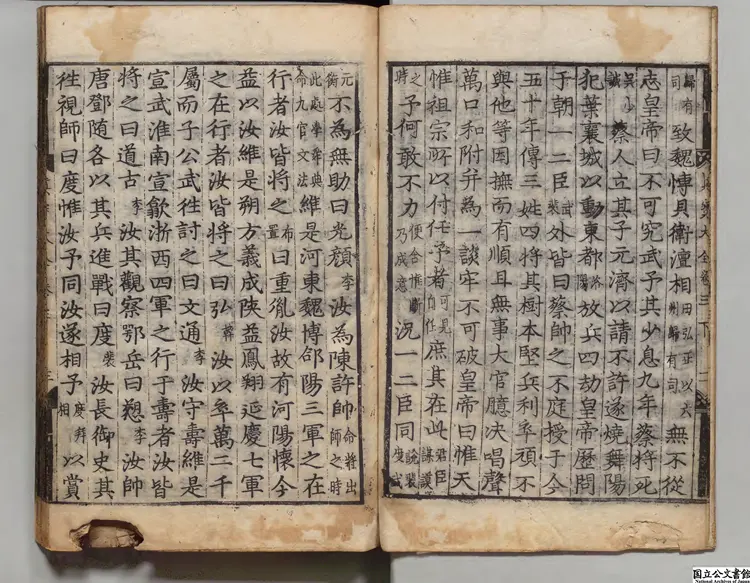 歸有司致魏博貝衛澶相田弘正以六州歸有司無不從
志皇帝曰不可究武予其少息九年蔡將死
吳少誠蔡人立其子元濟以請不許遂燒舞陽
犯葉襄城以動東都洛陽放兵四劫皇帝歷問
于朝一二臣武裴外皆曰蔡帥之不庭授于今
五十年傳三姓四將其樹本堅兵利卒頑不
與他等因撫而有順且無事大官臆决唱聲
萬口和附并為一談牢不可破皇帝曰惟天
惟祖宗所以付任予者可見自任庶其在此
之時予何敢不力便合惟斷乃成意况一二臣同裴度武
元衡不為無助曰光顔李汝為陳許帥命將出師之時
此處學舜典命九官文法維是河東魏博郃陽三軍之在
行者汝皆將之布置曰重胤汝故有河陽懷今
益以汝維是朔方義成陜益鳳翔延慶七軍
之在行者汝皆將之曰弘韓汝以卒萬二千
屬而子公武徃討之曰文通李汝守壽維是
宣武淮南宣歙浙西四軍之行于壽者汝皆
將之曰道古李汝其觀察鄂岳曰愬李汝帥
唐鄧隨各以其兵進戰曰度裴汝長御史其
徃視師曰度惟汝予同汝遂相予度拜相以賞
国立公文書館
National Archives of Japan